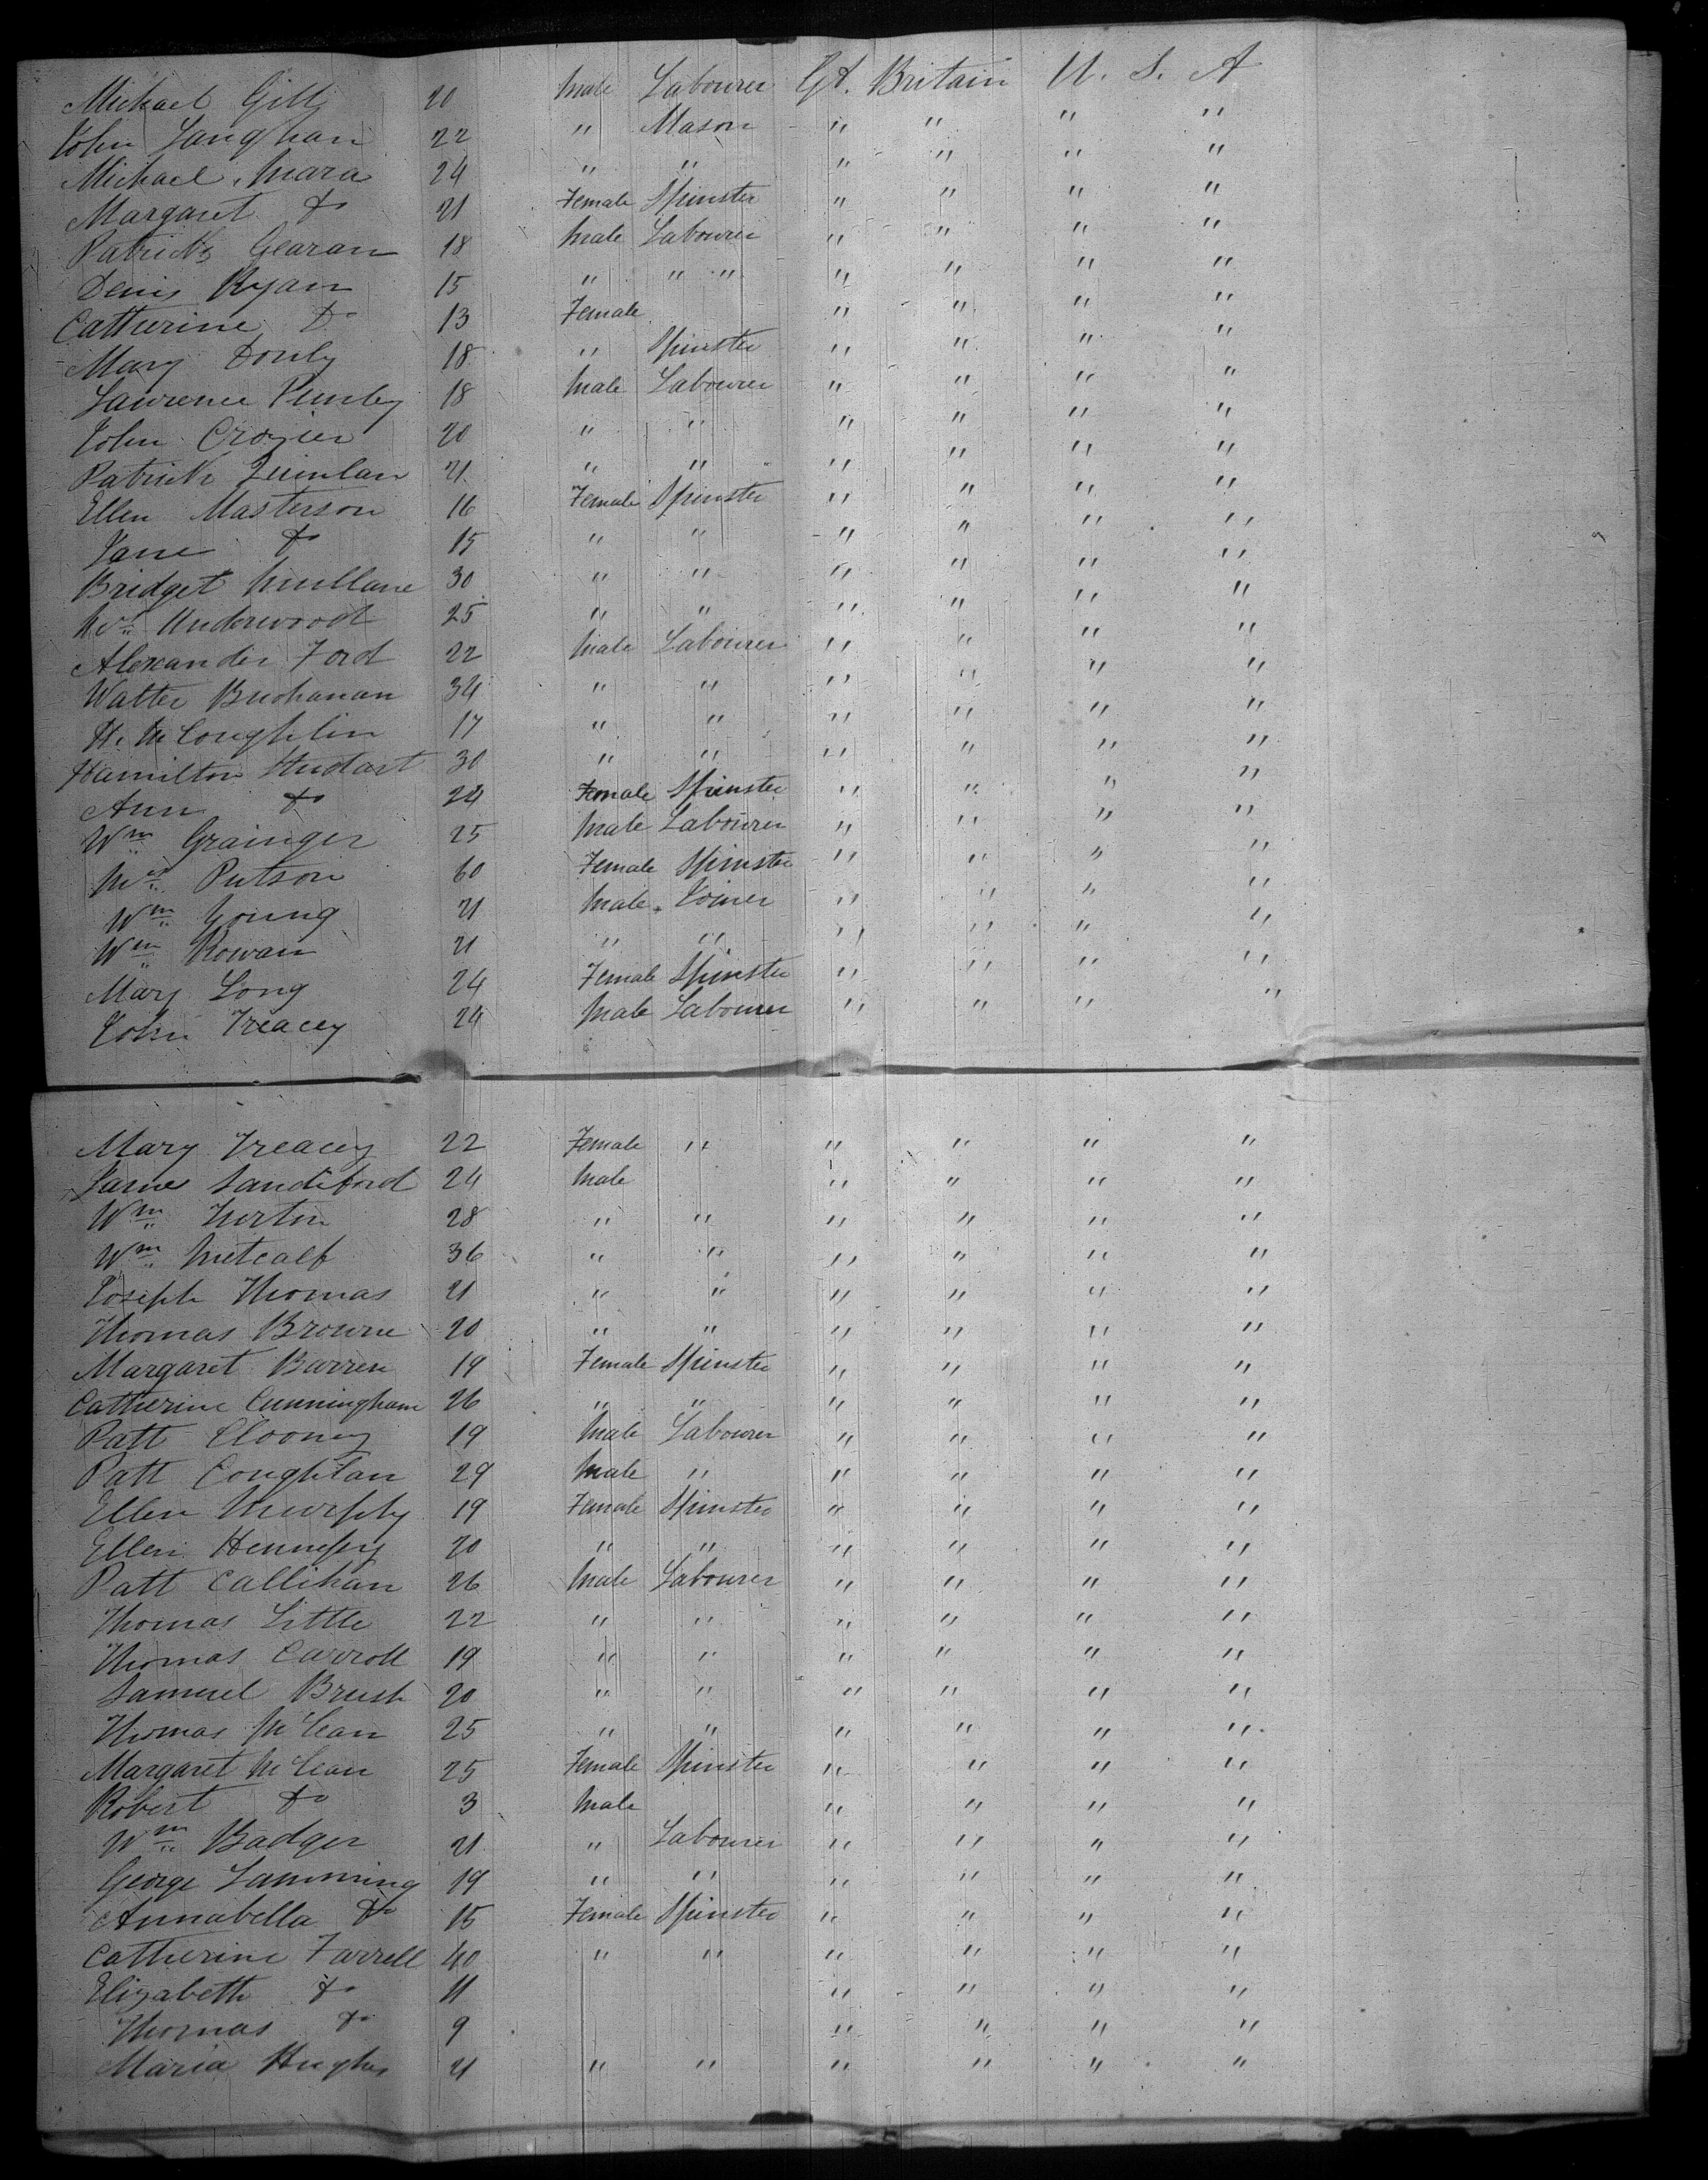 Michael Gill 20 Male Labourer Gt. Britain U. S. A
John Langhan 22 " Mason " " " "
Michael Mara 24 " " " " " "
Margaret Do 21 Female Spinster " " " "
Patrick Gearan 18 Male Labourer " " " "
Denis Ryan 15 " " " " " " "
Catherine Do 13 Female " " " "
Mary Donly 18 " Spinster " " " "
Lawrence Punley 18 Male Labourer " " " "
John Crozier 20 " " " " " "
Patrick Quinlan 21 " " " " " "
Ellen Masterson 16 Female Spinster " " " "
Jane Do 15 " " " " " "
Bridget Mullane 30 " " " " " "
Mrs Underwood 25 " " " " " "
Alexander Ford 22 Male Labourer " " " "
Walter Buchanan 34 " " " " " "
H. McCoughlin 17 " " " " " "
Hamilton Studart 30 " " " " " "
Ann Do 24 Female Spinster " " " "
Wm Grainger 25 Male Labourer " " " "
Mrs Putson 60 Female Spinster " " " "
Wm Young 21 Male Joiner " " " "
Wm Rowan 21 " " " " " "
Mary Long 24 Female Spinster " " " "
John Treacey 24 Male Labourer " " " "
Mary Treacey 22 Female " " " " "
James Sandiford 24 Male " " " "
Wm 28 " " " " " "
Wm Metcalf 36 " " " " " "
Joseph Thomas 21 " " " " " "
Thomas Browne 20 " " " " " "
Margaret Barren 19 Female Spinster " " " "
Catherine Cunningham 26 " " " " " "
Patt Clooney 19 Male Labourer " " " "
Patt Coughlan 29 Male " " " " "
Ellen Murphy 19 Female Spinster " " " "
Ellen Hennessy 20 " " " " " "
Patt Callihan 26 Male Labourer " " " "
Thomas Little 22 " " " " " "
Thomas Carroll 19 " " " " " "
Samuel Brush 20 " " " " " "
Thomas McCean 25 " " " " " "
Margaret McCean 25 Female Spinster " " " "
Robert Do 3 Male " " " "
Wm Badger 21 " Labourer " " " "
George Lamming 19 " " " " " "
Annabella Do 15 Female Spinster " " " "
Catherine Farrell 40 " " " " " "
Elizabeth Do 11 " " " "
Thomas Do 9 " " " "
Maria Hughes 21 " " " " " "